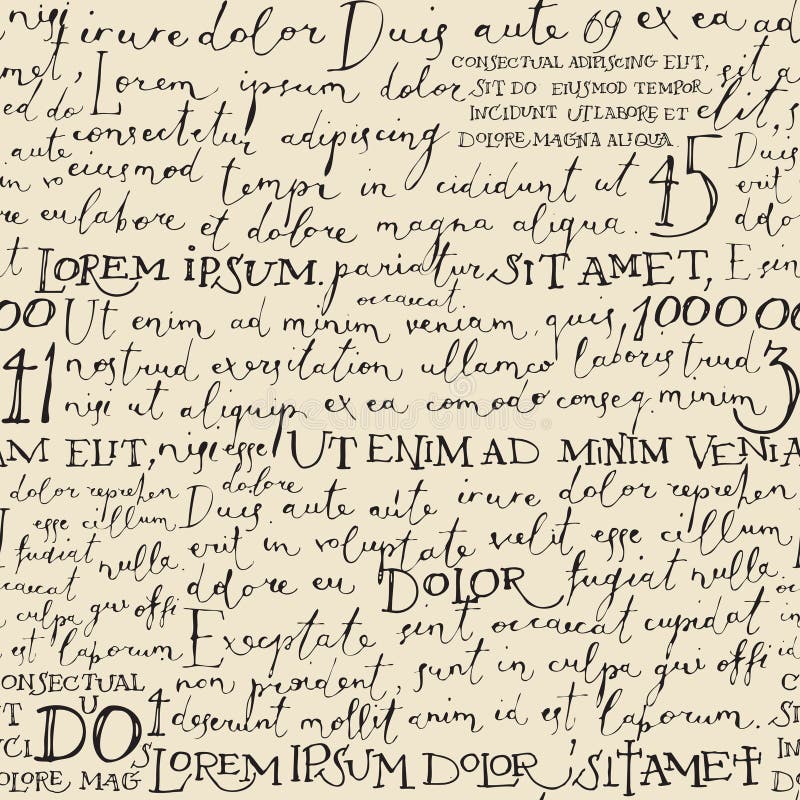 nisi irure dolor Duis aute 69 ex ea ad
met, Lorem ipsum dolor CONSECTUAL ADIPISCING ELIT, sit a
SIT DO EIUSMOD TEMPOR
ed do consectetur adipiscing INCIDUNT UT LABORE ET elit, s
DOLORE MAGNA ALIQUA.
aute eiusmod tempi in cididunt ut 45 Duis
in vo erit
re eu labore et dolore magna aliqua. dolo
t LOREM IPSUM. pariatur SIT AMET, E sin
occaecat.
00 Ut enim ad minim veniam, quis, 1000 0
41 nostrud exersitation ullamco laboris trud 3
nisi ut aliquip ex ea comodo conseq minim
AM ELIT, nisi esse UT ENIM AD MINIM VENIA
dolor reprehen dolore Duis aute aute irure dolor reprehen
esse cillum erit in voluptate velit esse cillum
fugiat nulla. dolore eu DOLOR fugiat nulla.
occaecat
culpa qui offi Exceptate sint occaecat cupidat
est laborum. non proident, sunt in culpa qui offi
ONSECTUAL U 1 deserunt mollit anim id est laborum.
T DO
NCI S LOREM IPSUM DOLOR SIT AMET
OLORE MAG